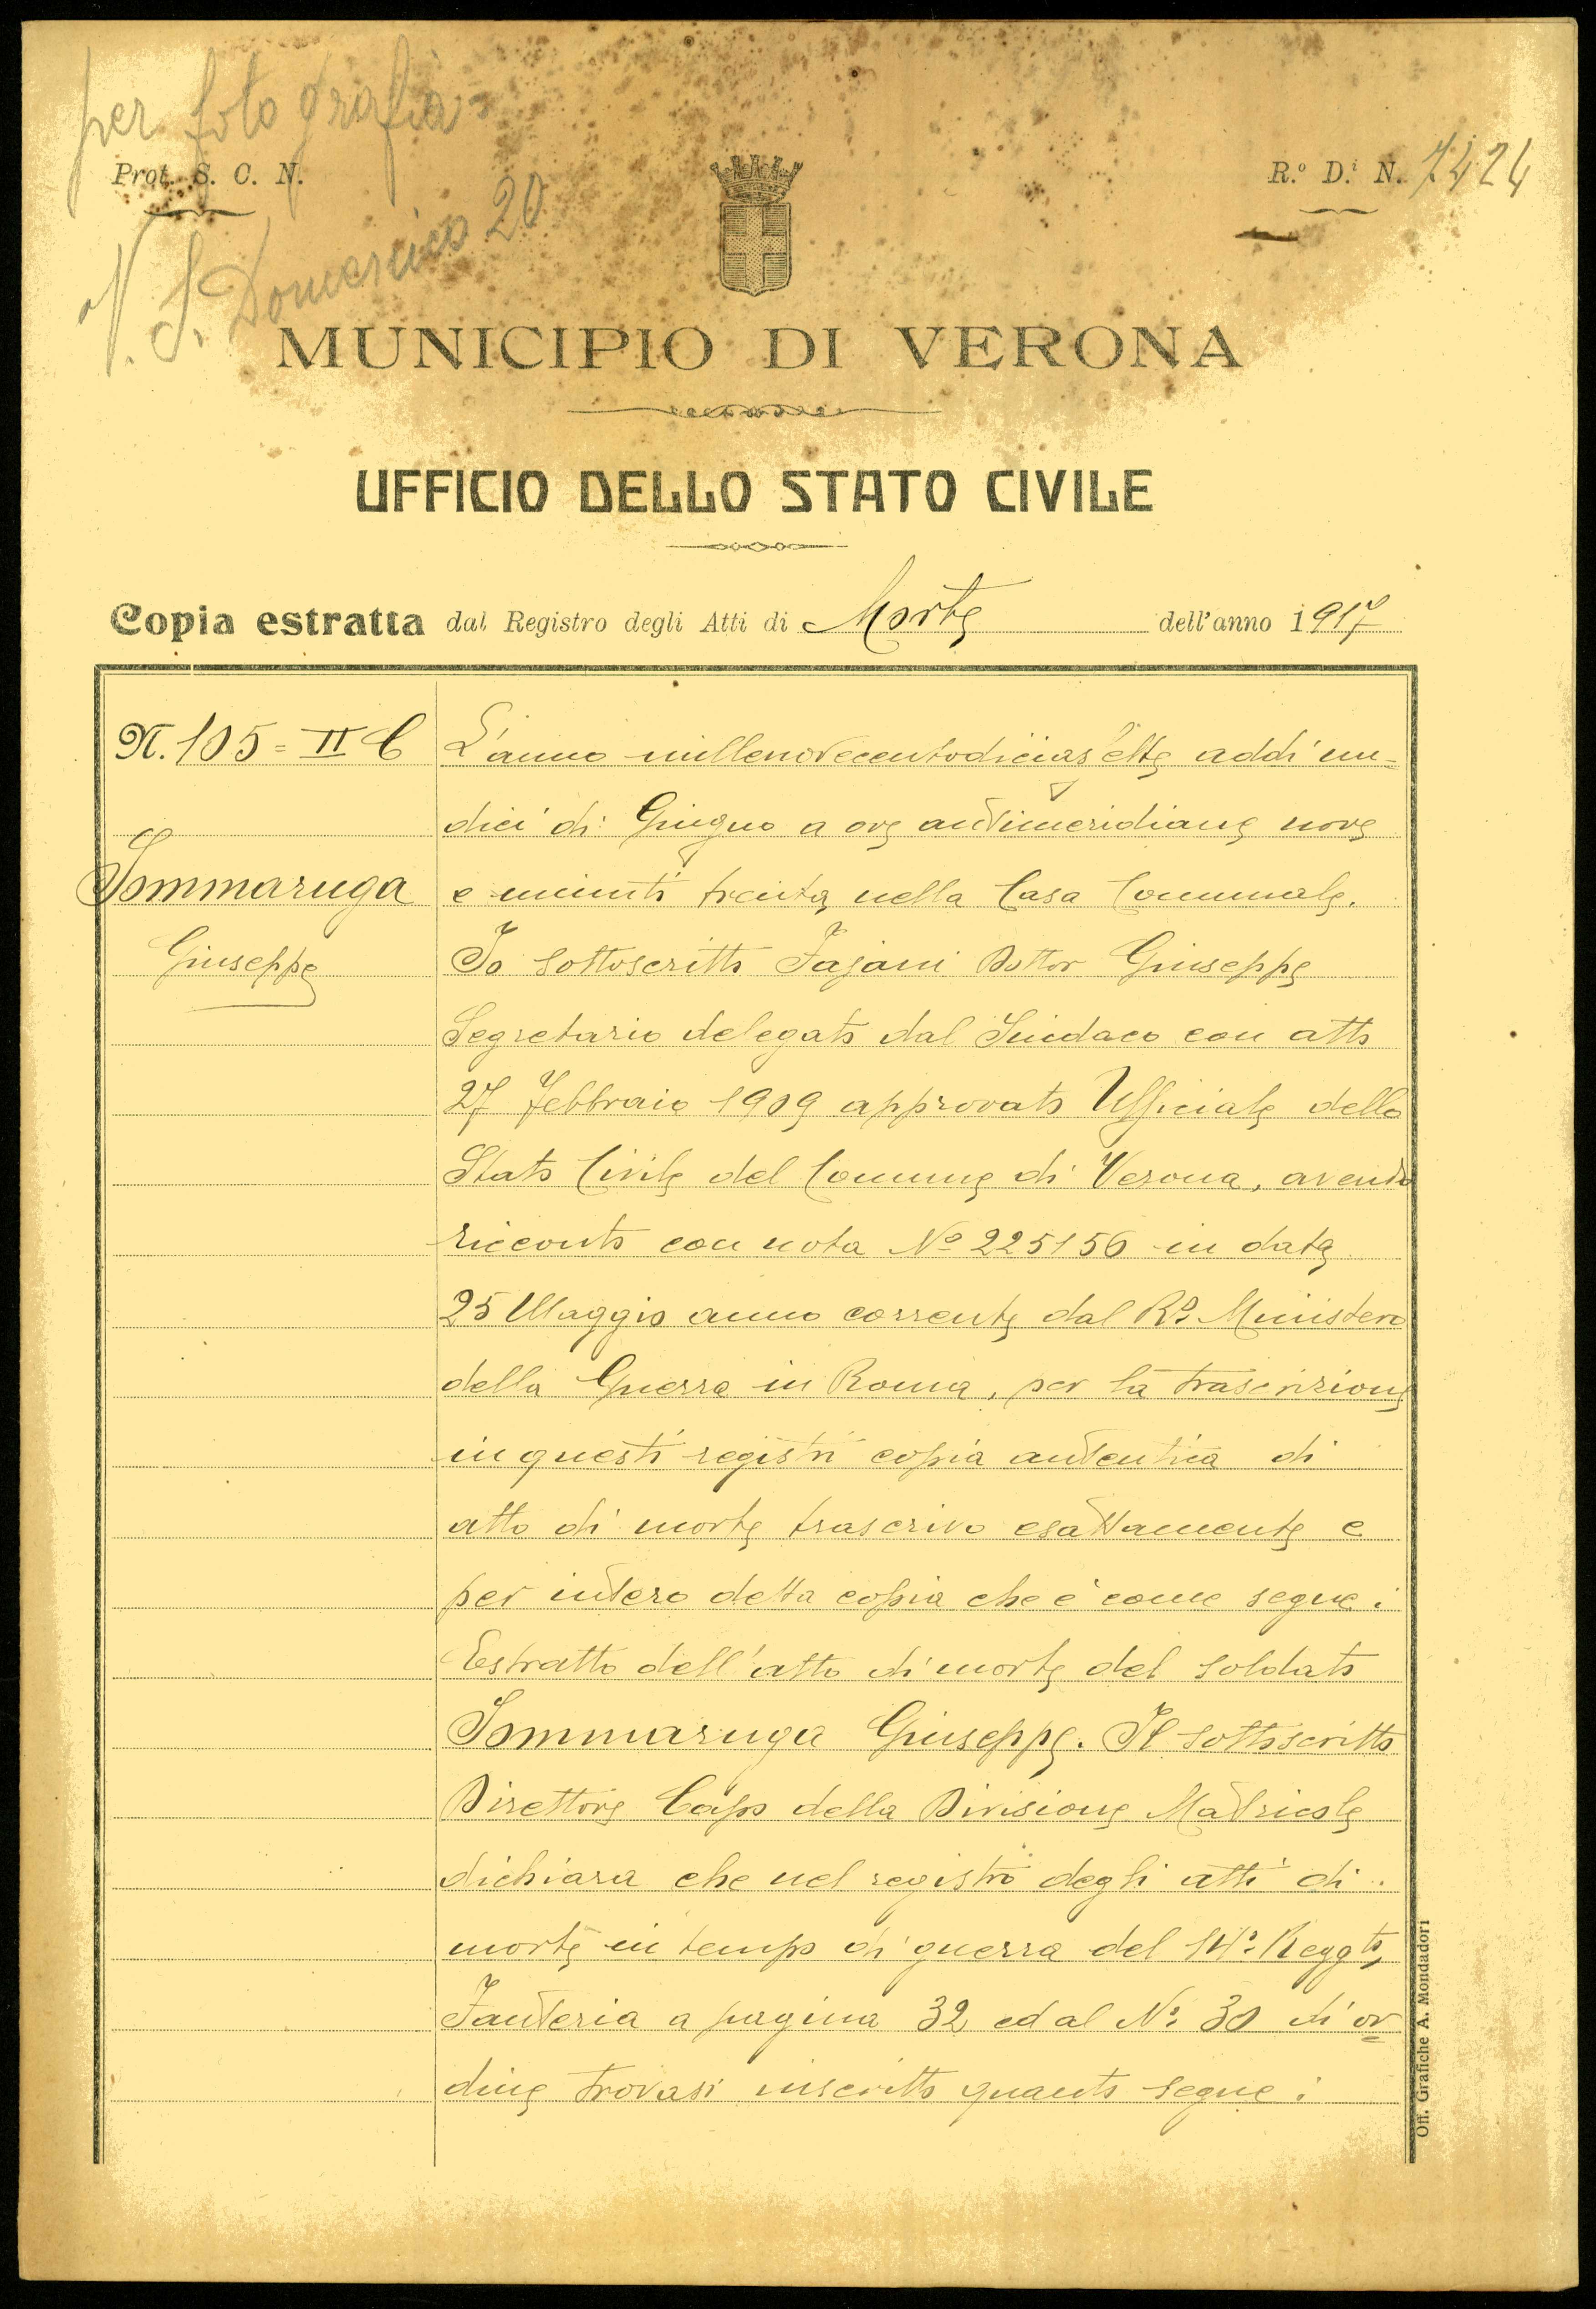 per fotografia
Prot. S. C. N.
R.º D.i N. 7424
V. S. Domenico 20
MUNICIPIO DI VERONA
UFFICIO DELLO STATO CIVILE
Copia estratta dal Registro degli Atti di Morte dell'anno 1917
N. 105 = II C
Sommaruga
Giuseppe
L'anno millenovecentodiciasette addì un=
dici di Giugno a ore antimeridiane nove
e minuti trenta, nella Casa Comunale.
Io sottoscritto Fajani Dottor Giuseppe
Segretario delegato dal Sindaco con atto
27 Febbraio 1909 approvato Ufficiale dello
Stato Civile del Comune di Verona, avendo
ricevuto con nota Nº 225156 in data
25 Maggio anno corrente dal Rº Ministero
della Guerra in Roma, per la trascrizione
in questi registri copia autentica di
atto di morte trascrivo esattamente e
per intero detta copia che è come segue:
Estratto dell'atto di morte del soldato
Sommaruga Giuseppe. Il sottoscritto
Direttore Capo della Divisione Matricole
dichiara che nel registro degli atti di
morte in tempo di guerra del Reggto,
Fanteria a pagina 32 ed al Nº 30 di or
dine trovasi inscritto quanto segue:
Off. Grafiche A. Mondadori